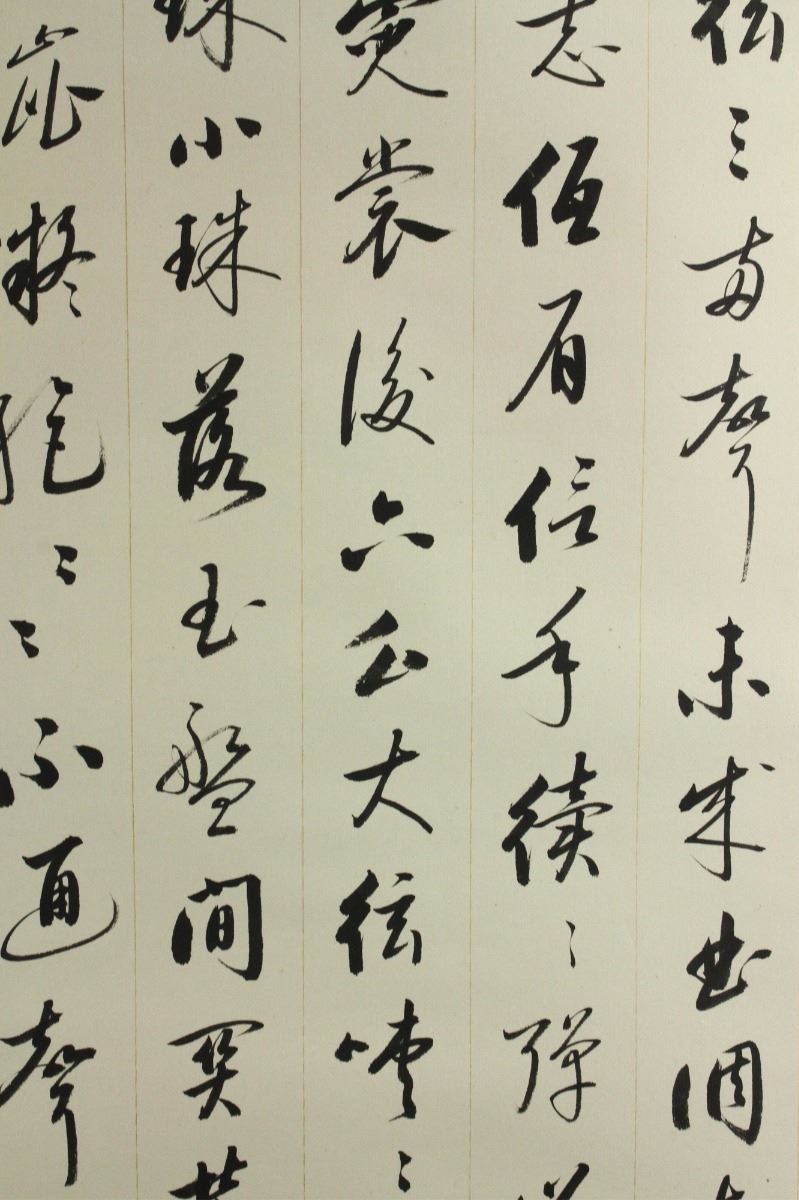 弦三兩聲未成曲調
志低眉信手續々彈
霓裳後六么大弦嘈々
珠小珠落玉盤間關花
凝々絕々不通聲